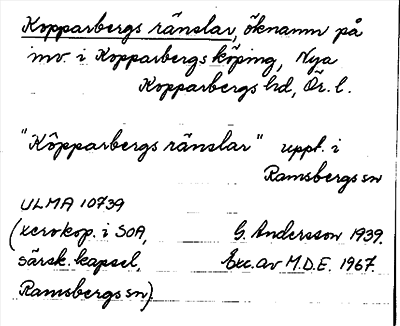 Kopparbergs ränslar, öknamn på
inv. i Kopparbergs köping, Nya
Kopparbergs hd, Ör. l.
"Kôpparbergs ränslar" uppt. i
Ramsbergs sn
ULMA 10739
(xerokop. i SOA, G. Andersson 1939.
särsk. kapsel, Exc. av M.D.E. 1967.
Ramsbergs sn)